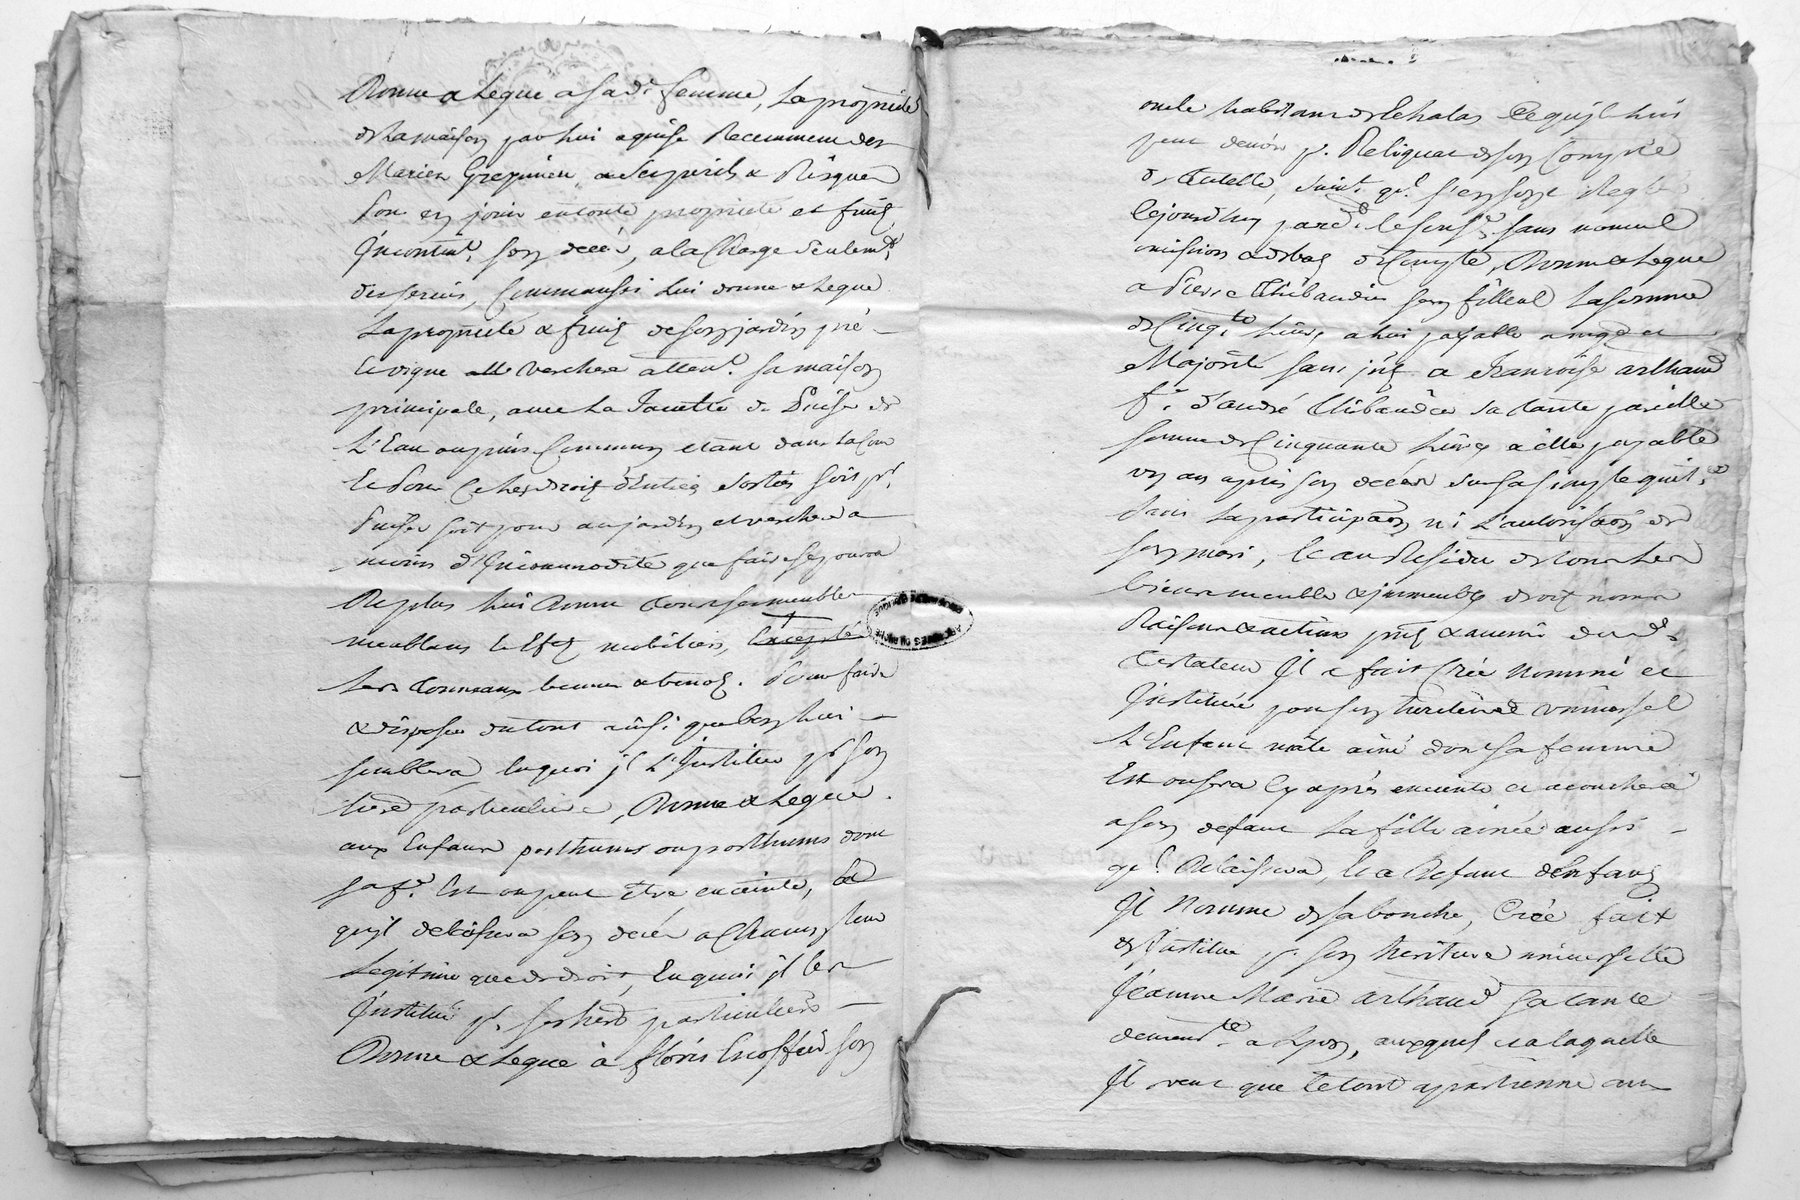 Donne & Legue a sad.e femme, La propriété
de La maison par lui aquise Recemment des
Mariez Grepinieu, a ses perils & Risques
Pour en jouir en toute propriété et fruis
Incontin.t son decés, a la Charge seulem.t
des servis, Comme aussi Lui donne & Legue
La propriété & fruis de son jardin pré
& vigne verchere atten.t sa maison
principale, avec La faculté de Puiser de
L'Eau au puis Commun etant dans La Cour
Et Pour Ce Les droits d'Entrées sorties soit p.r
Puiser soit pour au jardin et verchere a
moins d'Incommodité que faire se poura
De plus lui donne tous ses meubles
meublans & Effets mobiliers, Excepté
Les tonneaux bennes & tinots. Pour faire
& disposer du tout ainsi que bon lui
semblera En quoi il L'Institue p.r son
particuliere, Donne & Legue
aux Enfans posthumes ou posthums dont
sa f.e Est ou peut être enceinte, &
qu'il delaissera son decés a Chacun Leur
Legitime que de droit, En quoi il Les
Institue p.r ses particuliers
Donne & Legue à Floris Escoffier son
oncle habitant de Chalas Ce qu'il lui
peut devoir p.r Reliquat de son Compte
de tutelle, suiv.t qu'il s'en sont Reglés
Cejourd'hui pard.t sans nouvel
omission & de Compte, Donne & Legue
a Pierre Thibaudier son filleul La somme
de Cinq.te Livres a lui payable a
Majorité sans int. a Françoise arthaud
f.e d'andré Thibaudier sa tante pareille
somme de Cinquante Livres a elle payable
un an après son decés sur sa simple quit.ce
sans La participaon ni L'autorisaon de
son mari, & au Residu de tous Les
biens meubles & immeubles droits noms
Raisons & actions pnts & avenir dud.
testateur Il a fait Créé nommé et
Institué pour son heritier universel
L'Enfant mâle ainé dont sa femme
Est ou sera Cy après enceinte et acouchera
a son defaut La fille ainée aussi
qu'il Delaissera, & a Defaut d'Enfans
Il Nomme de sa bouche, Crée fait
& Institue p.r son heritiere universelle
Jeanne Marie arthaud sa tante
demeur.te a Lyon, auxquels & a laquelle
Il veut que le tout apartienne aux